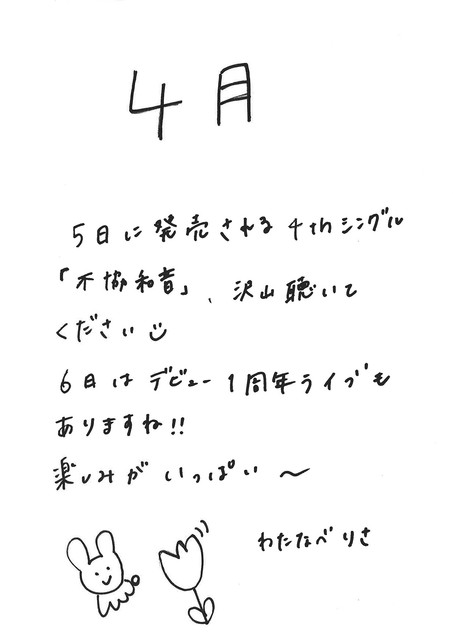 4月
5日に発売される4thシングル
「不協和音」、沢山聴いて
ください
6日はデビュー1周年ライブも
ありますね!!
楽しみがいっぱい〜
わたなべりさ